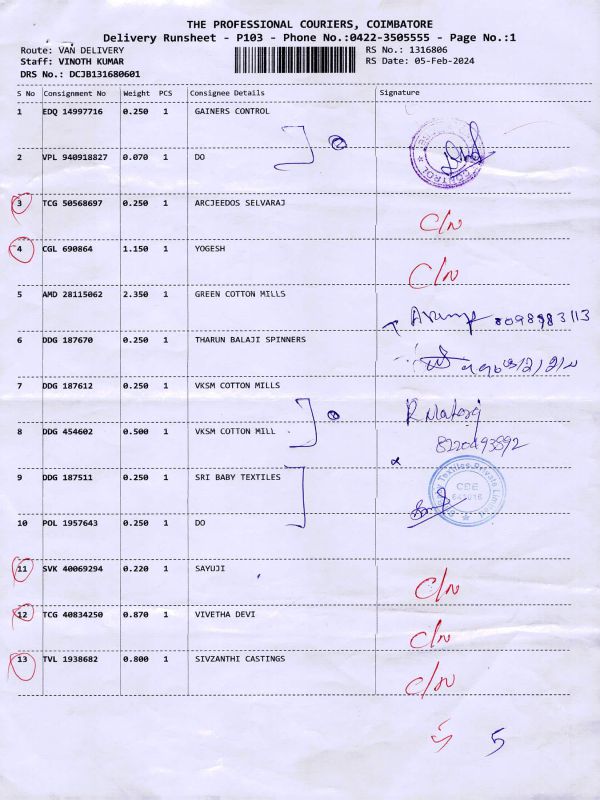 THE PROFESSIONAL COURIERS, COIMBATORE
Delivery Runsheet - P103 - Phone No.:0422-3505555 - Page No.:1
Route: VAN DELIVERY
RS No.: 1316806
Staff: VINOTH KUMAR
RS Date: 05-Feb-2024
DRS No.: DCJB131680601
S No Consignment No Weight PCS Consignee Details Signature
1 EDQ 14997716 0.250 1 GAINERS CONTROL
2 VPL 940918827 0.070 1 DO
3 TCG 50568697 0.250 1 ARCJEEDOS SELVARAJ C/N
4 CGL 690864 1.150 1 YOGESH C/N
5 AMD 28115062 2.350 1 GREEN COTTON MILLS 8098983113
6 DDG 187670 0.250 1 THARUN BALAJI SPINNERS
7 DDG 187612 0.250 1 VKSM COTTON MILLS
8 DDG 454602 0.500 1 VKSM COTTON MILL 8220493892
9 DDG 187511 0.250 1 SRI BABY TEXTILES
10 POL 1957643 0.250 1 DO
11 SVK 40069294 0.220 1 SAYUJI C/N
12 TCG 40834250 0.870 1 VIVETHA DEVI C/N
13 TVL 1938682 0.800 1 SIVZANTHI CASTINGS C/N
5